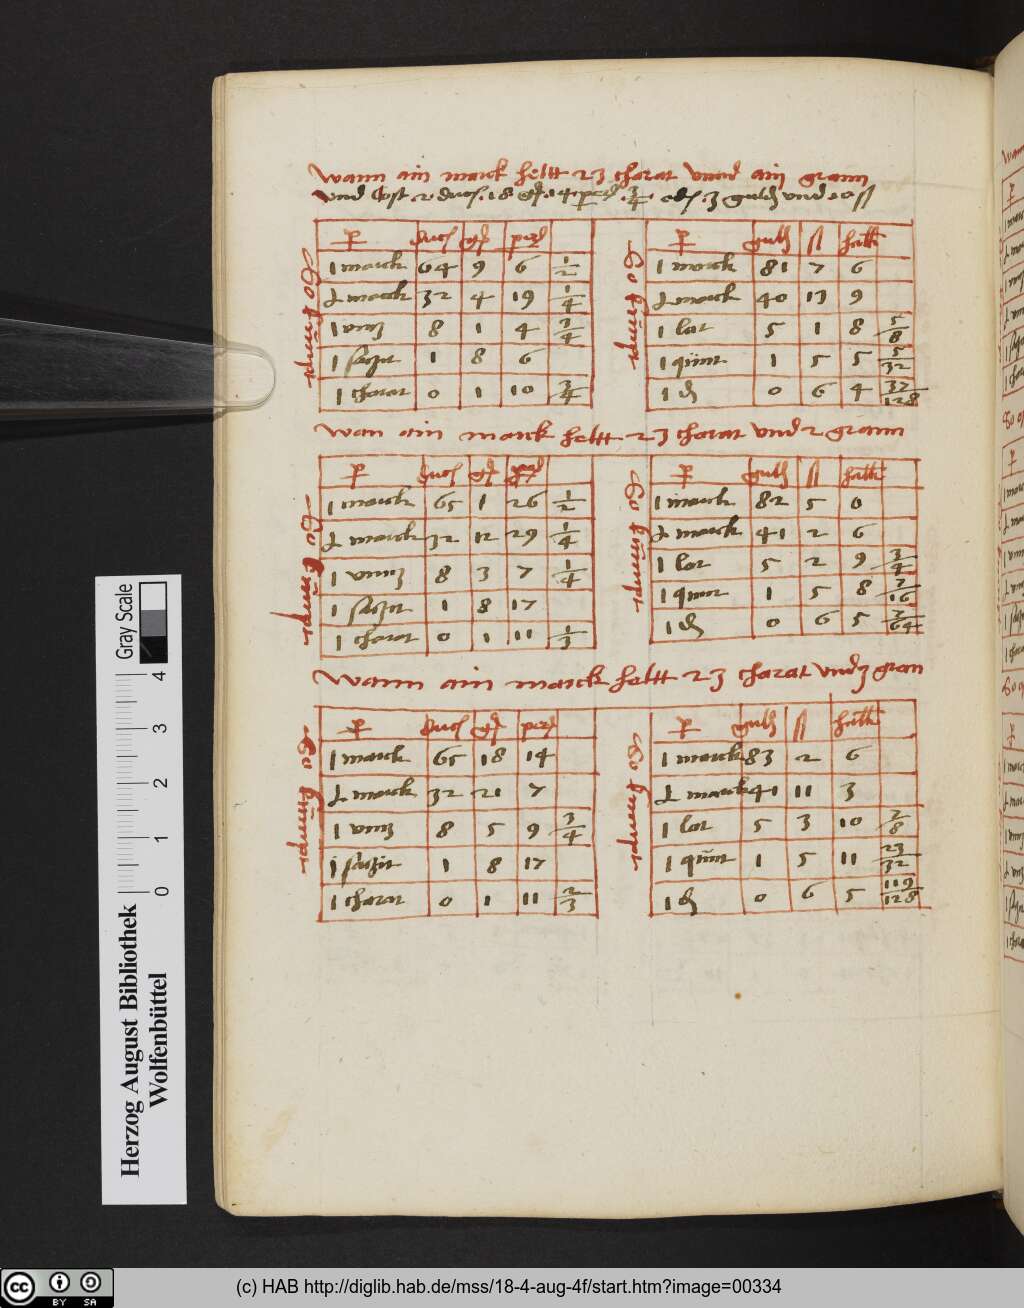 wann ain marck heltt 23 charat vnnd ain grann
vnd cost 2 duc 18 gr 14 3/4 oder 3 guld vnd 10 ß
So kumpt
duc gr
1 marck 64 9 6 1/2
marck 32 4 19 1/4
1 vnnz 8 1 4 3/4
1 sachzit 1 8 6
1 charat 0 1 10 3/4
So kumpt
guld ß hall
1 marck 81 7 6
marck 40 13 9
1 lot 5 1 8 5/8
1 quint 1 5 5 5/32
1 0 6 4 37/128
wan ain marck heltt 23 charat vnd 2 grann
So kumpt
duc gr
1 marck 65 1 26 1/2
marck 32 12 29 1/4
1 vnnz 8 3 7 1/4
1 sachzit 1 8 17
1 charat 0 1 11 1/3
So kumpt
guld ß hall
1 marck 82 5 0
marck 41 2 6
1 lot 5 2 9 3/4
1 quint 1 5 8 7/16
1 0 6 5 7/64
wann ain marck heltt 23 charat vnd 3 gran
So kumpt
duc gr
1 marck 65 18 14
marck 32 21 7
1 vnnz 8 5 9 3/4
1 sachzit 1 8 17
1 charat 0 1 11 2/3
So kumpt
guld ß hall
1 marck 83 2 6
marck 41 11 3
1 lot 5 3 10 7/8
1 quint 1 5 11 23/32
1 0 6 5 119/128
Herzog August Bibliothek
Wolfenbüttel
Gray Scale
0 1 2 3 4
cc BY SA
(c) HAB http://diglib.hab.de/mss/18-4-aug-4f/start.htm?image=00334